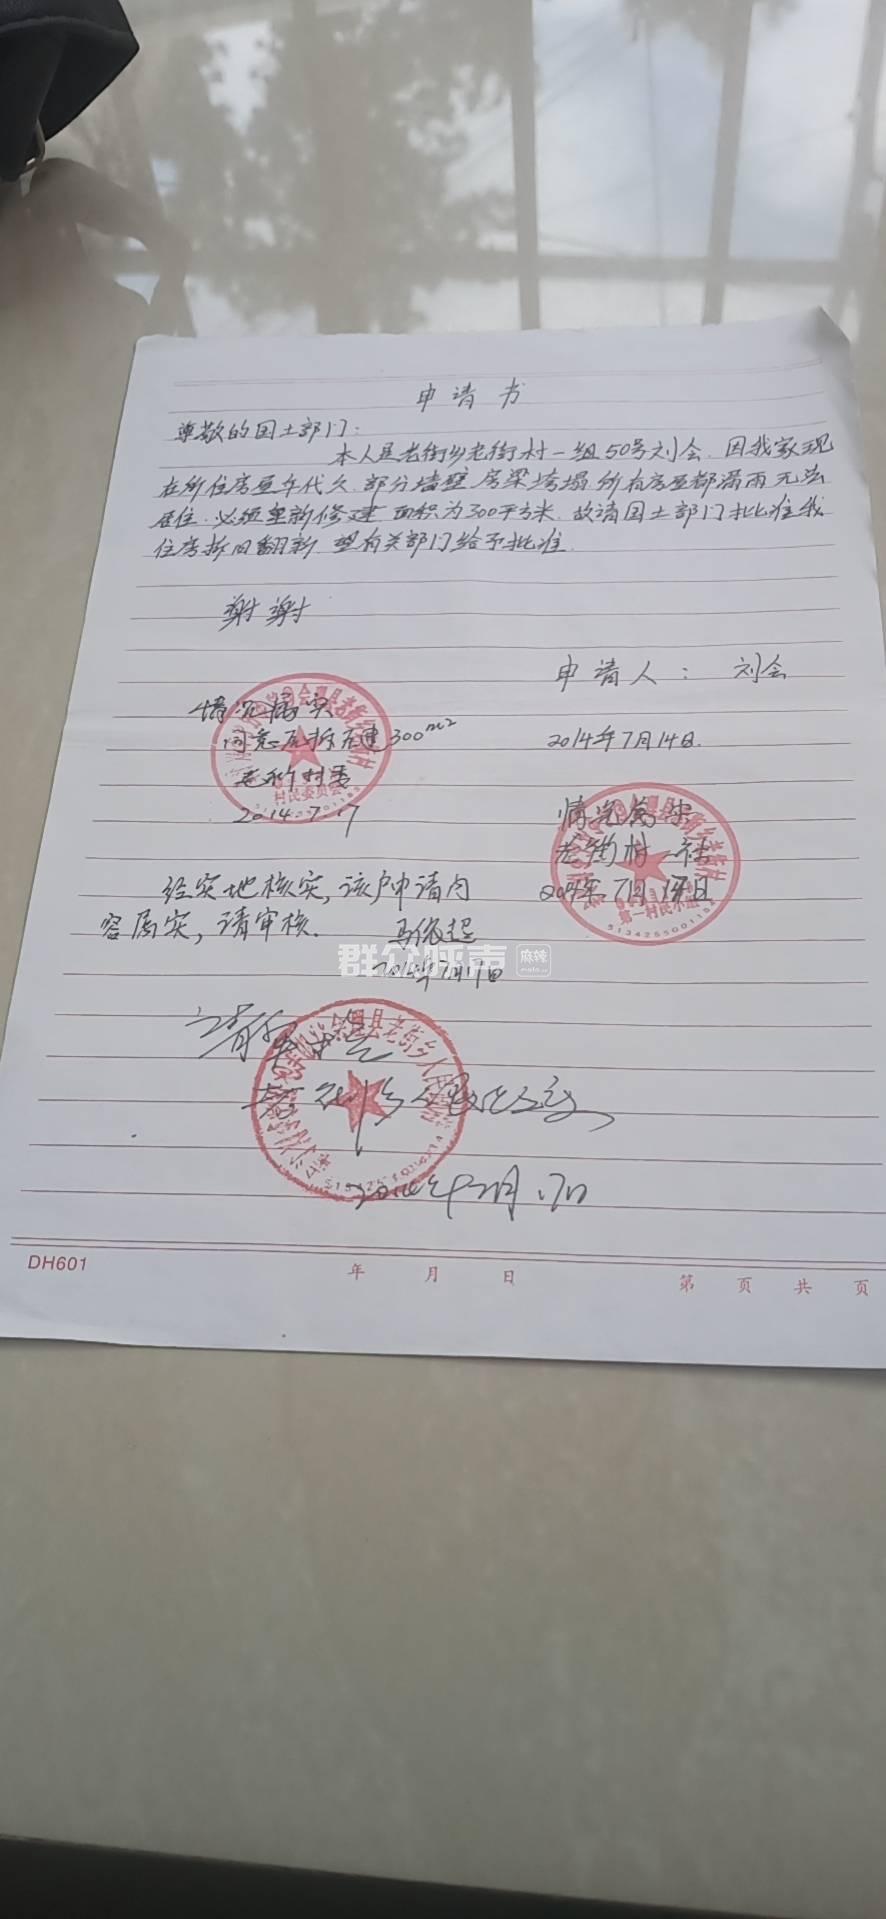 申请书
尊敬的国土部门：
本人是老街乡老街村一组50号刘会．因我家现
在所住房屋年代久．部分墙壁．房梁垮塌．所有房屋都漏雨无法
居住．必须重新修建 面积为300平方米．故请国土部门批准我
住房拆旧翻新 望有关部门给予批准．
谢谢
申请人：刘会
2014年7月14日．
情况属实
同意 300m2
老街村委
村民委员会
2014.7.17
情况属实
老街村一社
2014年7月14日
第一村民小组
5134255001152
经实地核实，该户申请内
容属实，请审核．
群众呼声 麻辣
会理县老街乡人民
DH601
年 月 日
第 页 共 页